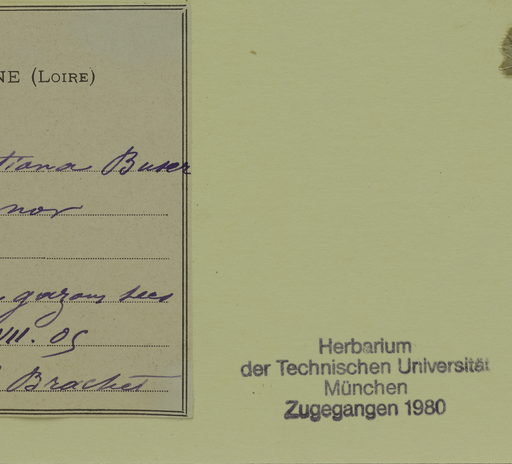 NE (LOIRE)
tiana Buser
nor
gazons secs
VII. 05
Brachet
Herbarium
der Technischen Universität
München
Zugegangen 1980